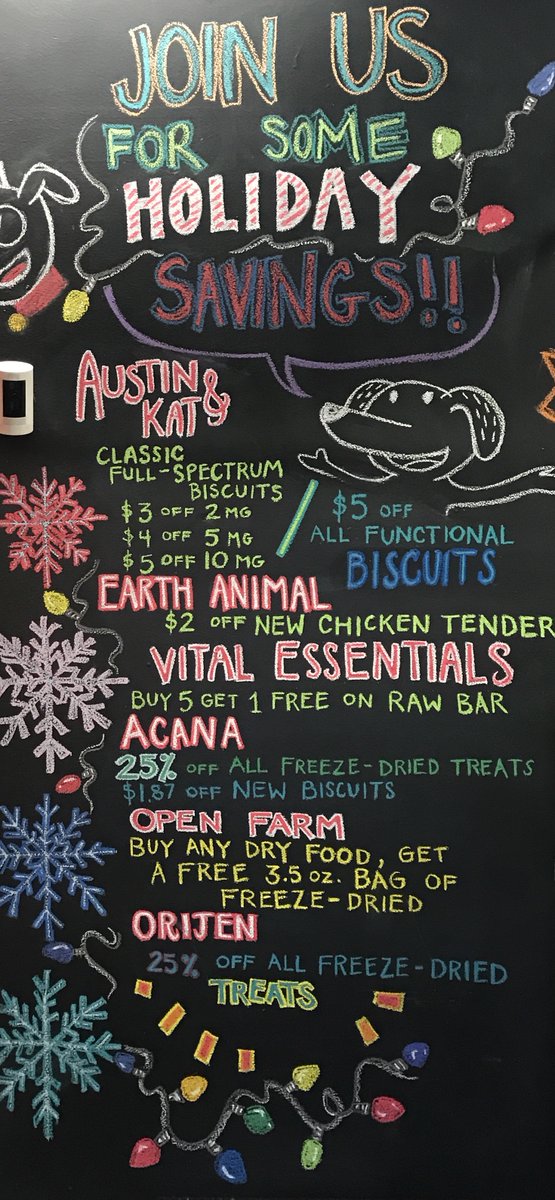 JOIN US
FOR SOME
HOLIDAY
SAVINGS!!
AUSTIN &
KAT
CLASSIC
FULL-SPECTRUM
BISCUITS
$3 OFF 2 MG
$4 OFF 5 MG
$5 OFF 10 MG
/
$5 OFF
ALL FUNCTIONAL
BISCUITS
EARTH ANIMAL
$2 OFF NEW CHICKEN TENDER
VITAL ESSENTIALS
BUY 5 GET 1 FREE ON RAW BAR
ACANA
25% OFF ALL FREEZE-DRIED TREATS
$1.87 OFF NEW BISCUITS
OPEN FARM
BUY ANY DRY FOOD, GET
A FREE 3.5 OZ. BAG OF
FREEZE-DRIED
ORIJEN
25% OFF ALL FREEZE-DRIED
TREATS